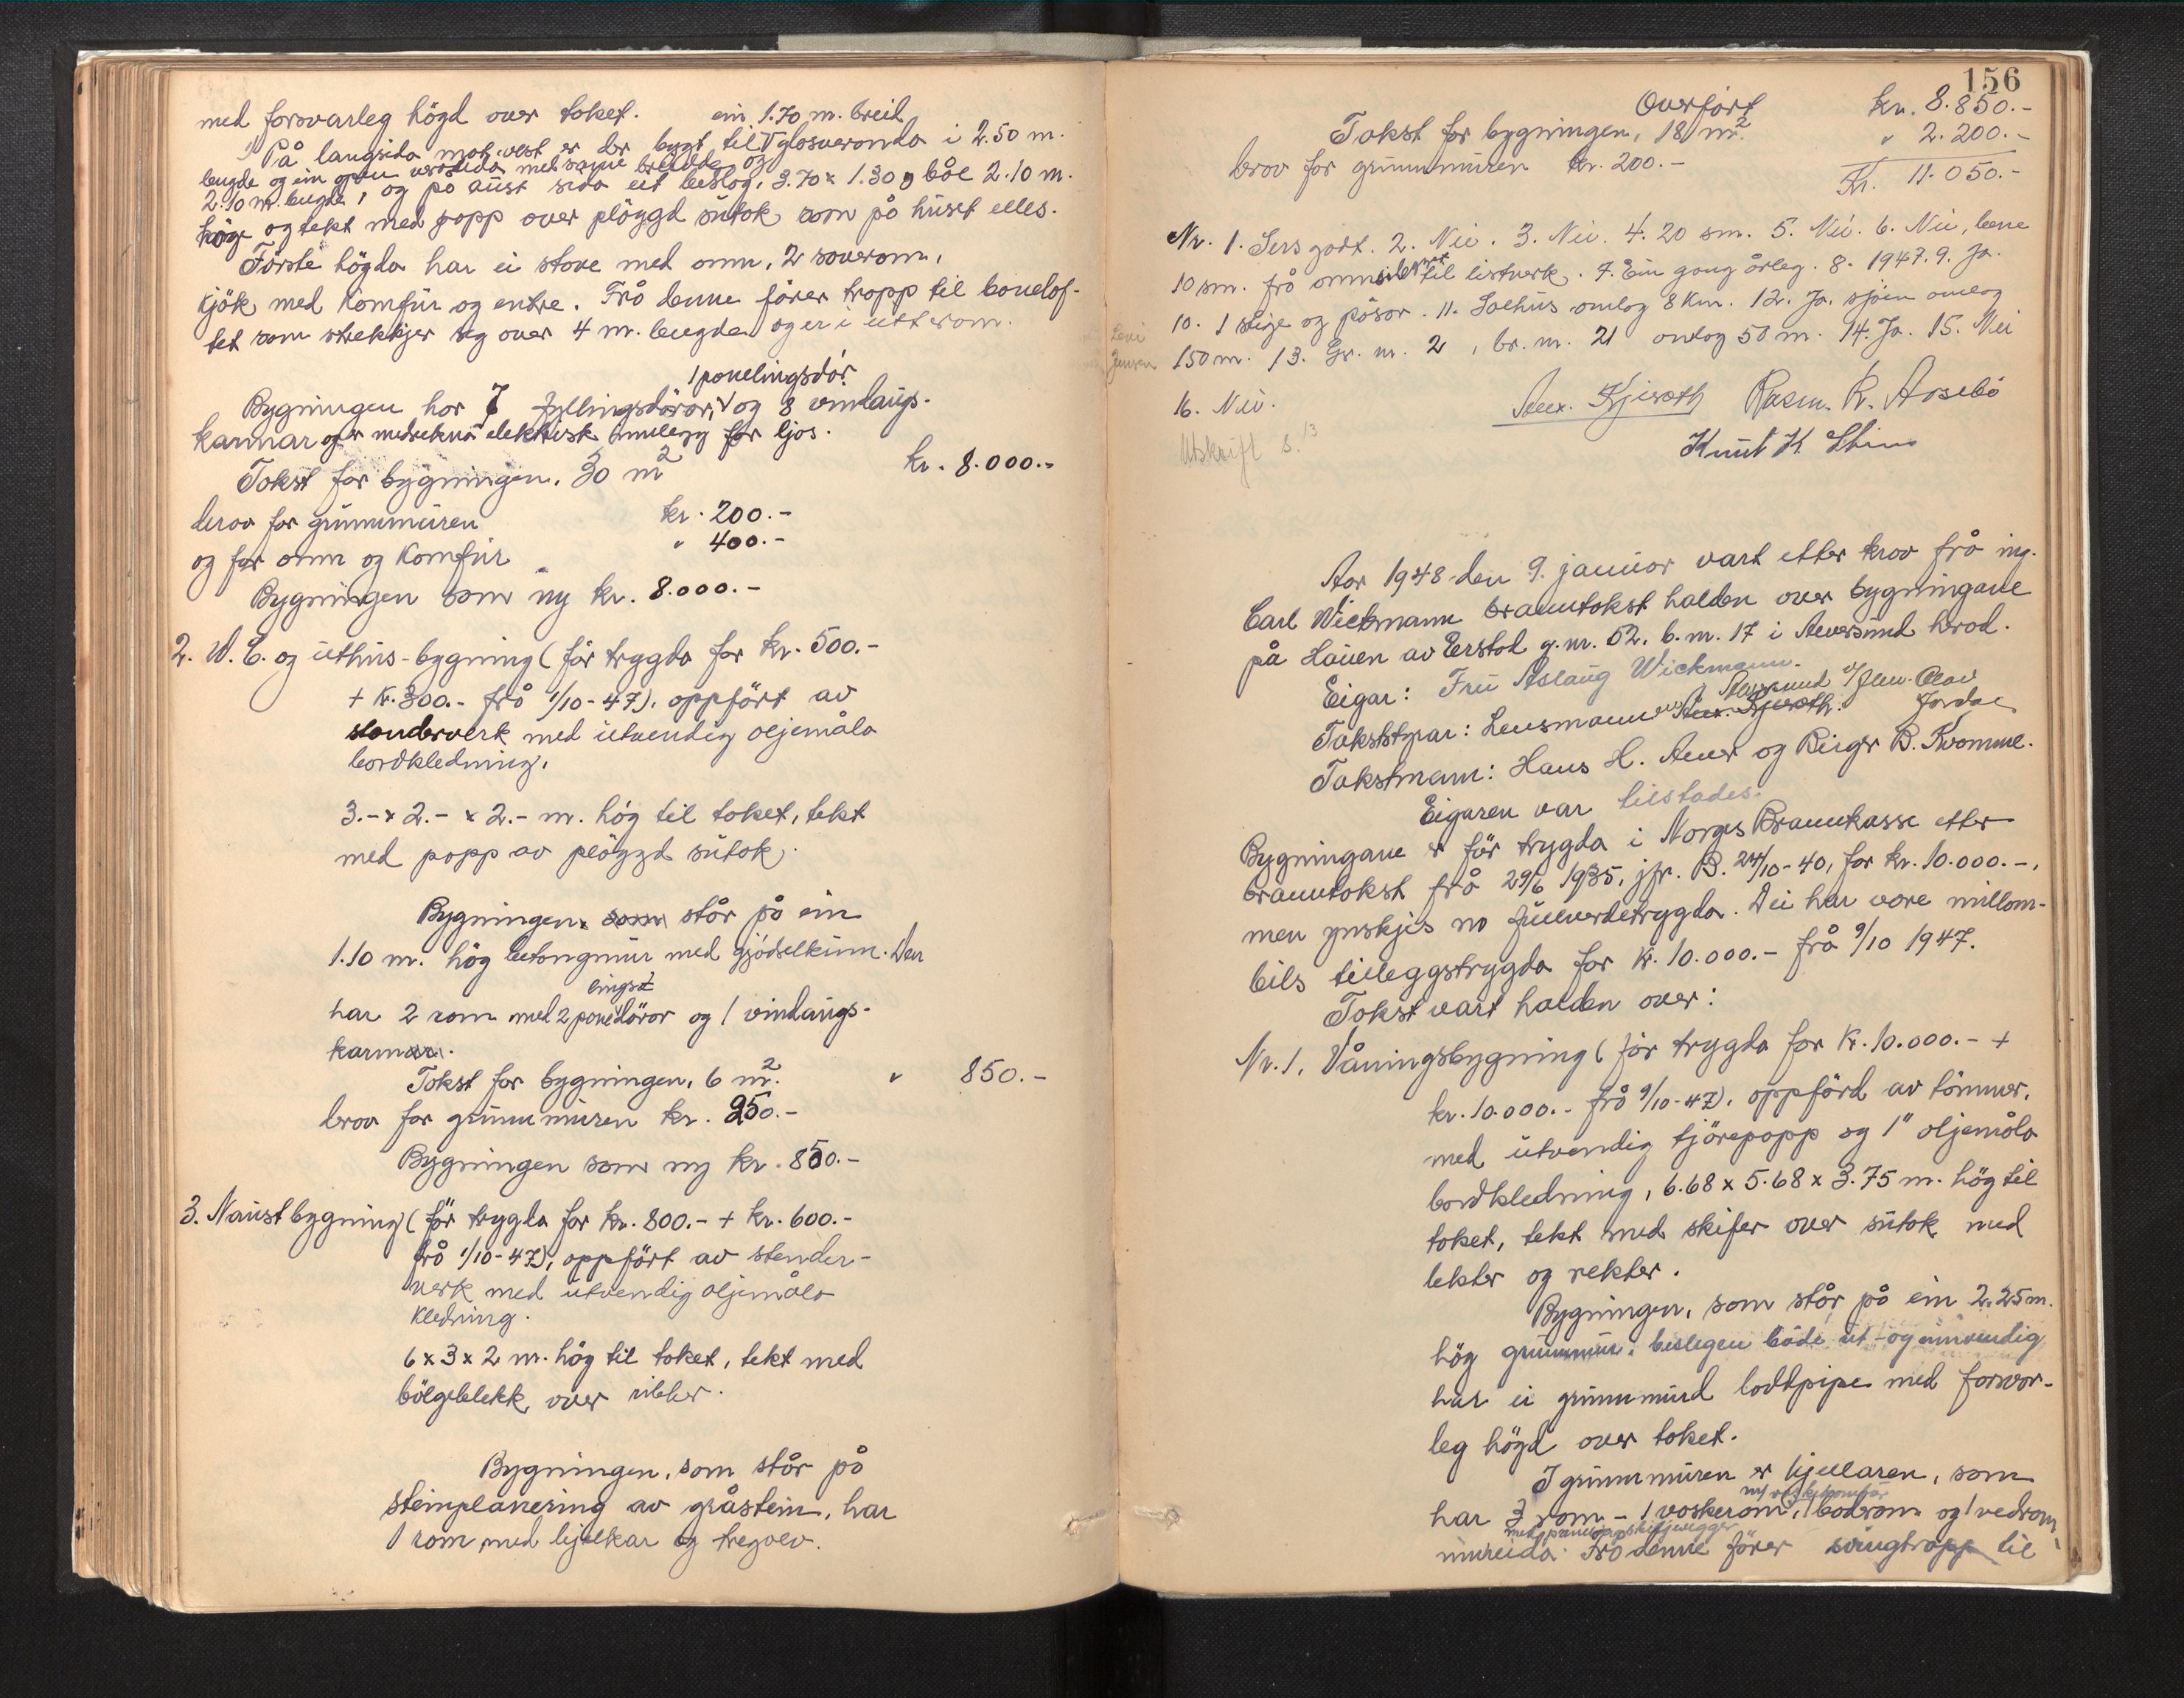 med forsvarleg högd over taket. ein 1.70 m. breid
På langsida mot vest er der bygt til glasveranda i 2.50 m.
lengde og ein open veranda med same breidde og
2.10 m. lengde, og på aust sida eit beslag, 3.70 x 1.30 og båe 2.10 m.
höge og tekt med papp over pløygd sutak som på huset elles.
Förste högda har ei stove med omn, 2 soverom,
kjök med komfur og entre. Frå denne förer trapp til bonelof-
tet som strekkjer seg over 4 m. lengde og er i eitt rom.
1 panelingsdör
Bygningen har 7 fyllingsdörar, og 8 vindaugs-
karmar og er medrekna elektrisk innlegg for ljos.
Takst for bygningen, 30 m2 kr. 8.000.-
derav for grunnmuren kr. 200.-
og for omn og komfur " 400.-
Bygningen som ny kr. 8.000.-
2. W.C. og uthus-bygning (för trygda for kr. 500.-
+ kr. 300.- frå 1/10-47), oppfört av
standerverk med utvendig oljemåla
bordkledning,
3.- x 2.- x 2.- m. hög til taket, tekt
med papp av pløygd sutak.
Bygningen som står på ein
1.10 m. hög betongmur med gjödselkum. Den
lings
har 2 rom med 2 paneldörar og 1 vindaugs-
karmar.
Takst for bygningen, 6 m2. " 850.-
derav for grunnmuren kr. 250.-
Bygningen som ny kr. 850.-
3. Naustbygning (för trygda for kr. 800.- + kr. 600.-
frå 1/10-47), oppfört av stender-
verk med utvendig oljemåla
kledning.
6 x 3 x 2 m. hög til taket, tekt med
bölgeblekk over ribber.
Bygningen, som står på
steinplanering av gråstein, har
1 rom med bjelkar og tregolv.
156
Overfört kr. 8.850.-
Takst for bygningen, 18 m2. " 2.200.-
derav for grunnmuren kr. 200.-
Kr. 11.050.-
Nr. 1. Sers godt. 2. Nei. 3. Nei. 4. 20 sm. 5. Nei. 6. Nei, berre
10 sm. frå omnsideröret til listverk. 7. Ein gang årleg. 8. 1947. 9. Ja.
10. 1 stige og pösar. 11. Salhus omlag 8 km. 12. Ja, sjöen omlag
150 m. 13. Gr. nr. 2, br. nr. 21 omlag 50 m. 14. Ja. 15. Nei
16. Nei.
Alex. Kjeroth Rasm. R. Åsebö
Utskrift s. 13
Knut K. Stuns
Aar 1948 den 9. januar vart etter krav frå ing.
Carl Wickmann branntakst halden over bygningane
på Haugen av Erstad g.nr. 52. b.nr. 17 i Alversund herad.
Eigar: Fru Aslaug Wickmann.
Takststyrar: Lensmann Alex. Kjeroth.
Jordal
Takstmenn: Hans H. Alver og Birger B. Kvamme.
Eigaren var tilstades.
Bygningane er för trygda i Norges Brannkasse etter
branntakst frå 29/6 1935, jfr. B. 24/10-40, for kr. 10.000.-,
men ynskjes no fullverdetrygda. Dei har vore millom-
bils tilleggstrygda for kr. 10.000.- frå 9/10 1947.
Takst vart halden over:
Nr. 1. Våningsbygning (för trygda for kr. 10.000.- +
kr. 10.000.- frå 9/10-47), oppförd av tömmer,
med utvendig tjörepapp og 1" oljemåla
bordkledning, 6.68 x 5.68 x 3.75 m. hög til
taket, tekt med skifer over sutak med
lekter og rekter.
Bygningen, som står på ein 2.25 m.
hög grunnmur, beslegen både ut- og innvendig
har ei grunnmurd loddpipe med forsvar-
leg högd over taket.
I grunnmuren er kjellaren, som
har 3 rom - 1 vaskerom, 1 bodrom og 1 vedrom
Frå denne förer svingtrapp til